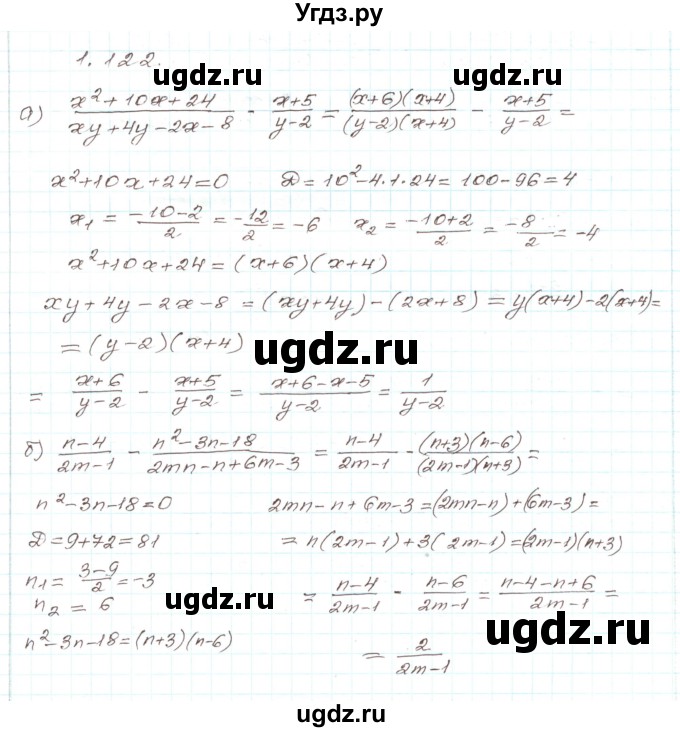 Угдз.ру
1.122.
а) (x²+10x+24)/(xy+4y-2x-8) - (x+5)/(y-2) = ((x+6)(x+4))/((y-2)(x+4)) - (x+5)/(y-2) =
x²+10x+24=0 D=10²-4·1·24=100-96=4
x₁ = (-10-2)/2 = -12/2 = -6 x₂ = (-10+2)/2 = -8/2 = -4
x²+10x+24=(x+6)(x+4)
xy+4y-2x-8=(xy+4y)-(2x+8)=y(x+4)-2(x+4)=
=(y-2)(x+4)
= (x+6)/(y-2) - (x+5)/(y-2) = (x+6-x-5)/(y-2) = 1/(y-2)
б) (n-4)/(2m-1) - (n²-3n-18)/(2mn-n+6m-3) = (n-4)/(2m-1) - ((n+3)(n-6))/((2m-1)(n+3)) =
n²-3n-18=0 2mn-n+6m-3=(2mn-n)+(6m-3)=
D=9+72=81 =n(2m-1)+3(2m-1)=(2m-1)(n+3)
n₁ = (3-9)/2 = -3
n₂ = 6 = (n-4)/(2m-1) - (n-6)/(2m-1) = (n-4-n+6)/(2m-1) =
n²-3n-18=(n+3)(n-6) = 2/(2m-1)
ugdz.ru
ugdz.ru
ugdz.ru
ugdz.ru
ugdz.ru
ugdz.ru